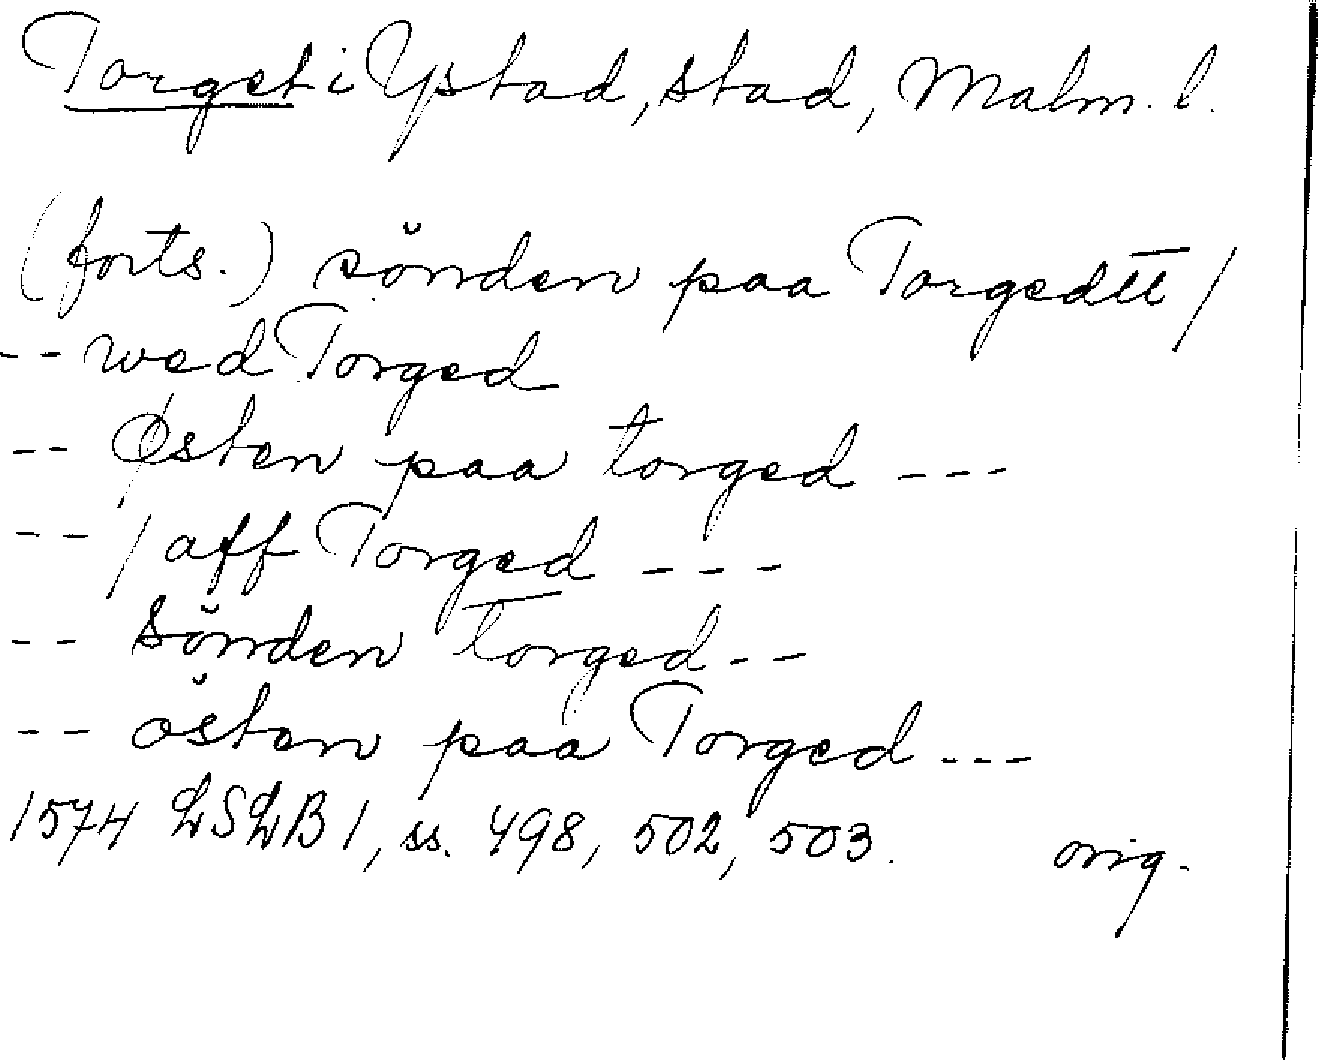 Torget i Ystad, stad, Malm. l.
(forts.) sönden paa Torgedtt /
-- wed Torged
-- Østen paa torged ---
-- / aff Torged ---
-- Sönden Torged --
-- östen paa Torged ---
1574 LSLB 1, ss. 498, 502, 503. orig.